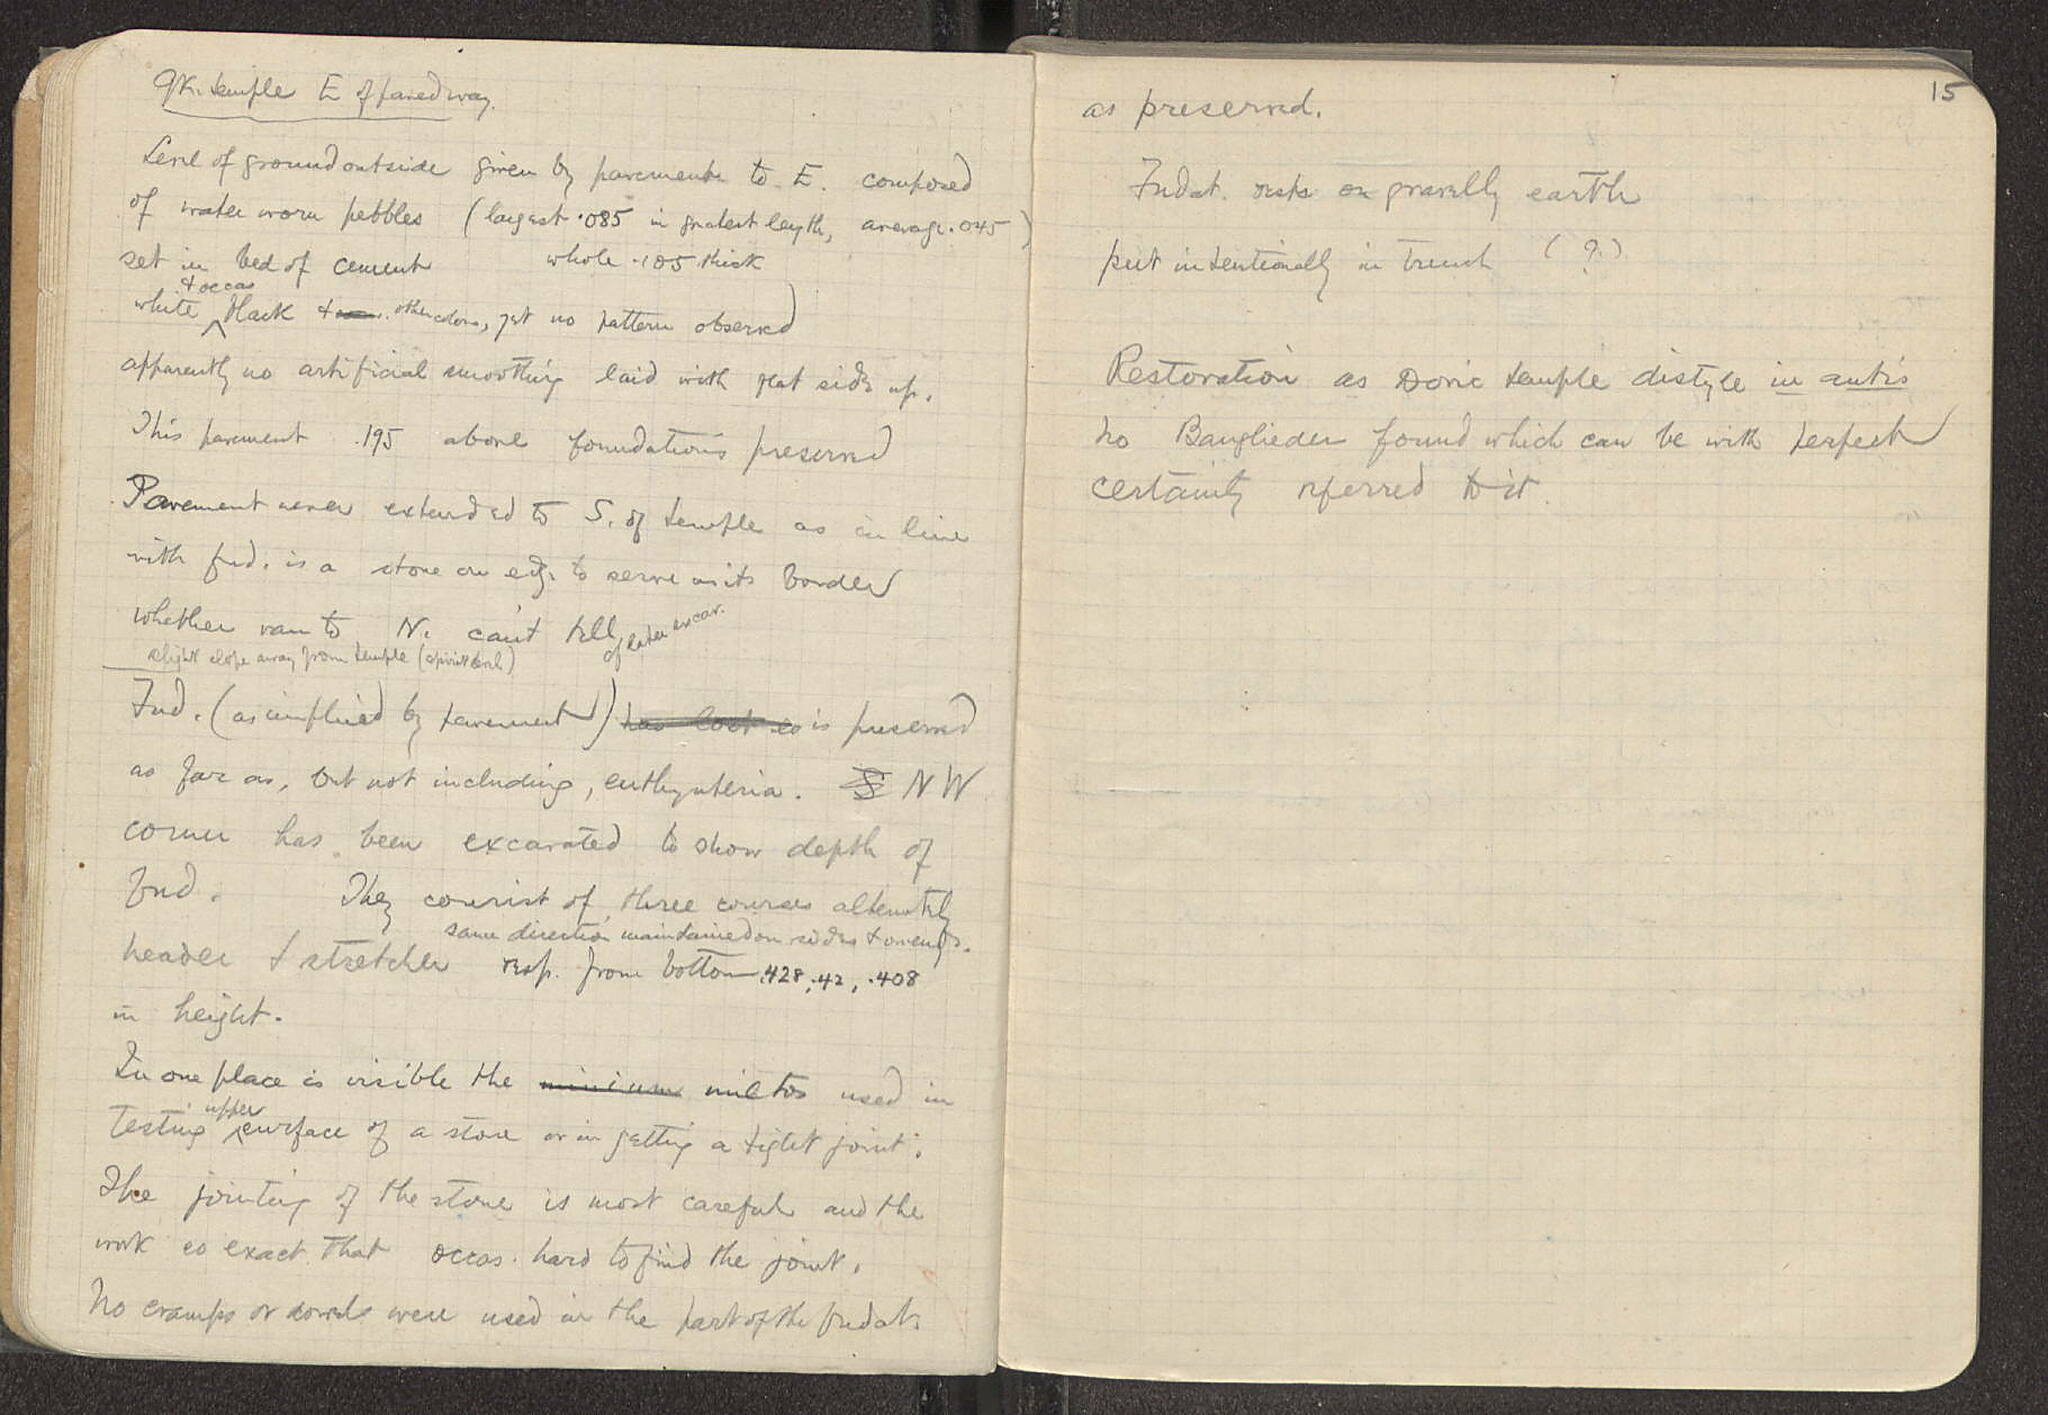 Gk. temple E of paved way.
Level of ground outside given by pavement to E. composed
of water worn pebbles (largest .085 in greatest length, average .045)
set in bed of cement whole .105 thick
& occas
white black & other colors, yet no pattern observed
apparently no artificial smoothing laid with flat side up.
This pavement .195 above foundations preserved
Pavement never extended to S. of temple as in line
with fnd. is a stone on edge to serve as its border
whether ran to N. can't tell of later excav.
slight slope away from temple (spirit level)
Fnd. (as implied by pavement) has lost so is preserved
as far as, but not including, euthynteria. S NW
corner has been excavated to show depth of
fnd. They consist of three courses alternately
same direction maintained on sides & on ends.
header & stretcher resp. from bottom .428, .42, .408
in height.
In one place is visible the minium miltos used in
upper
testing surface of a stone or in getting a tight joint.
The jointing of the stone is most careful and the
work so exact that occas. hard to find the joint.
No cramps or dowels were used in the part of the fndat.
15
as preserved.
Fndat. rests on gravelly earth
put intentionally in trench (?)
Restoration as Doric temple distyle in antis
No Bauglieder found which can be with perfect
certainty referred to it.